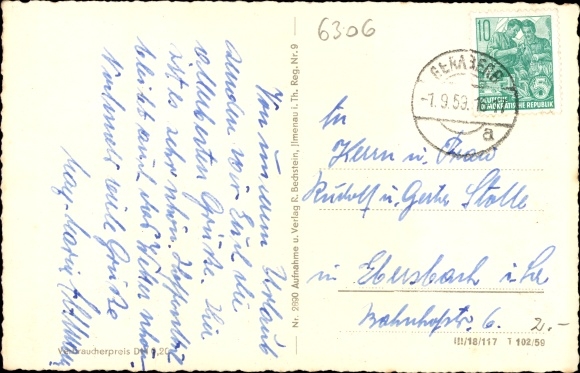 6306
10
5
DEUTSCHE
DEMOKRATISCHE REPUBLIK
GERABERG
-1.9.59.
a
Von unserem Urlaub
senden wir Euch die
allerbesten Grüße. Hier
ist es sehr schön. Hoffentlich
bleibt auch das Wetter schön.
Nochmals viele Grüße
An
Herrn u. Frau
Rudolf u. Gerta Stolle
in Ebersbach i. Sa
Bahnhofstr. 6.
2.-
Nr. 2890 Aufnahme u. Verlag R. Bechstein, Ilmenau i. Th. Reg. Nr. 9
Verbraucherpreis DM 0,20
III/18/117 T 102/59